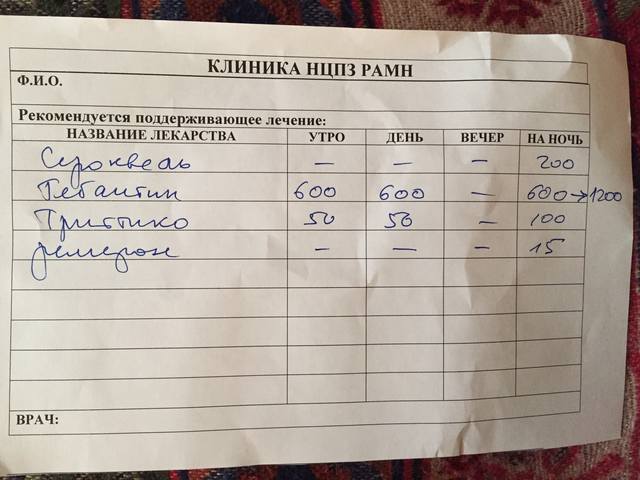 КЛИНИКА НЦПЗ РАМН
Ф.И.О.
Рекомендуется поддерживающее лечение:
НАЗВАНИЕ ЛЕКАРСТВА УТРО ДЕНЬ ВЕЧЕР НА НОЧЬ
Сероквель — — — 200
Тебантин 600 600 — 600→1200
Триттико 50 50 — 100
ремерон — — — 15
ВРАЧ: